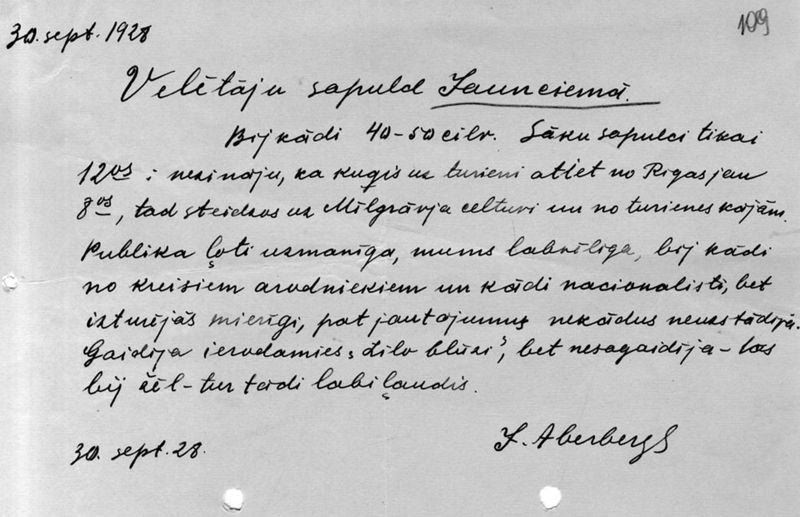 109
30. sept. 1928
Velētāju sapulcē Jaunciemā.
Bij kādi 40-50 cilv. Sāku sapulci tikai
12os : nezināju, ka kuģis uz turieni atiet no Rigas jau
8os, tad steidzos uz Milgrāvja celtuvi un no turienes kājām.
Publika ļoti uzmanīga, mums labvēlīga, bij kādi
no kreisiem arodniekiem un kādi nacionalisti, bet
izturējās mierīgi, pat jautajumus nekādus neuzstādija.
Gaidija ierodamies „Zilo blūzi", bet nesagaidija - tas
bij žēl - tur tādi labi ļaudis.
30. sept. 28.
J. Aberbergs